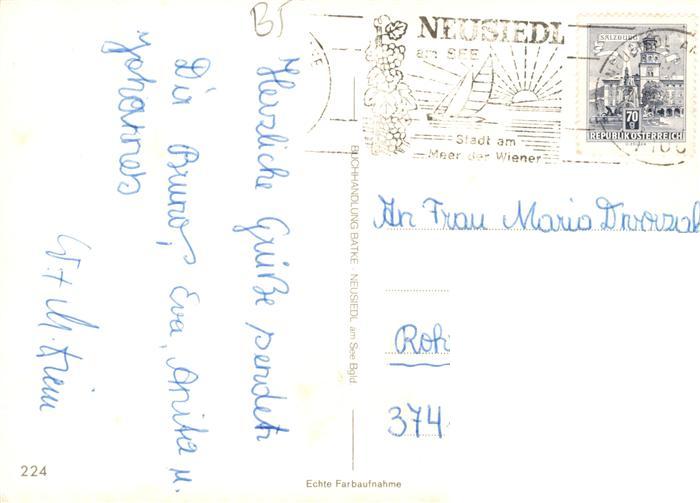 BJ
Herzliche Grüße sendet
Dir Bruno, Eva, Anita u.
Johannes
W. + M.
NEUSIEDL
am SEE
Stadt am
Meer der Wiener
SALZBURG
70
g
REPUBLIK ÖSTERREICH
7100
An Frau Maria
Roh
374
BUCHHANDLUNG BATKE - NEUSIEDL am See Bgld.
224
Echte Farbaufnahme